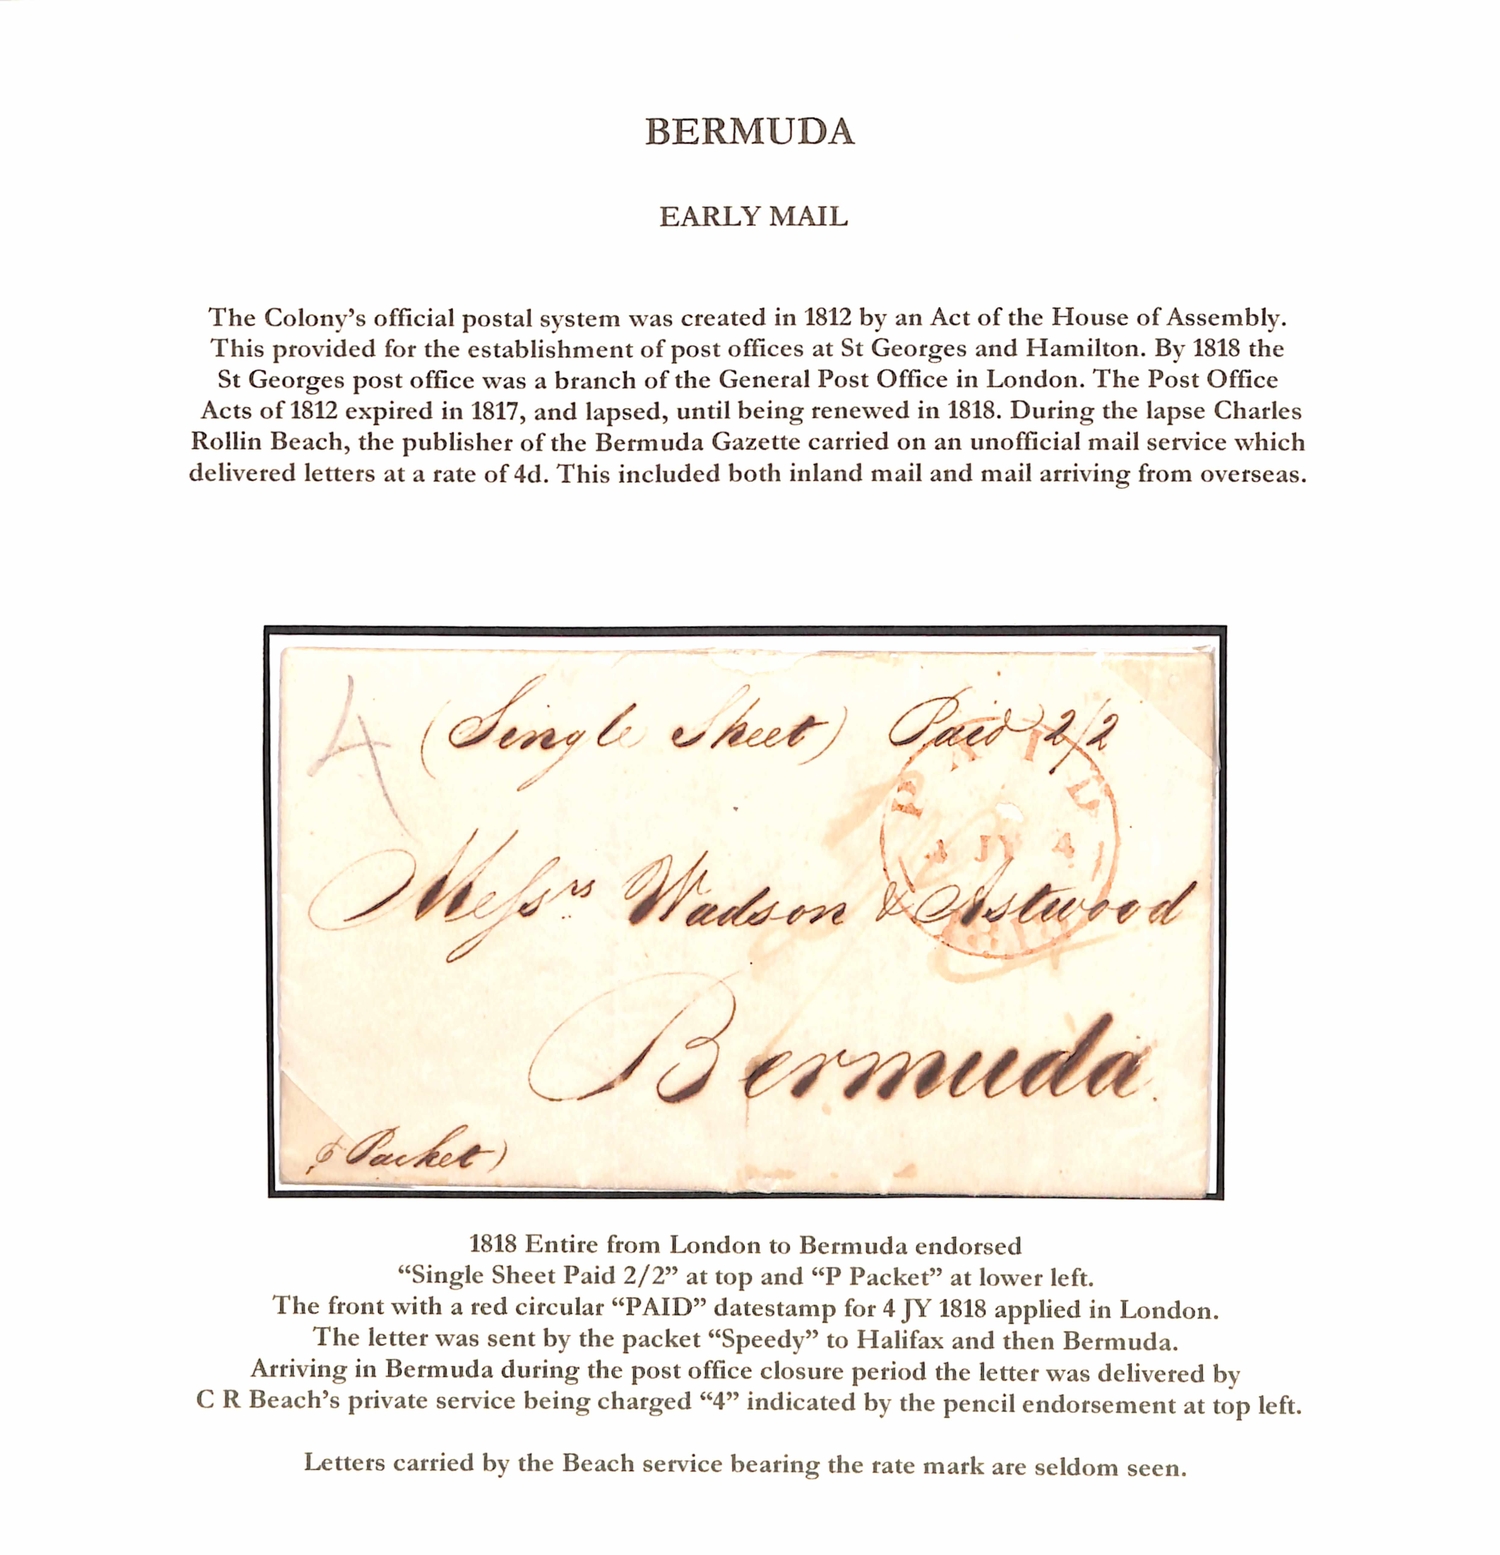 BERMUDA
EARLY MAIL
The Colony’s official postal system was created in 1812 by an Act of the House of Assembly.
This provided for the establishment of post offices at St Georges and Hamilton. By 1818 the
St Georges post office was a branch of the General Post Office in London. The Post Office
Acts of 1812 expired in 1817, and lapsed, until being renewed in 1818. During the lapse Charles
Rollin Beach, the publisher of the Bermuda Gazette carried on an unofficial mail service which
delivered letters at a rate of 4d. This included both inland mail and mail arriving from overseas.
4
(Single Sheet) Paid 2/2
PAID
4 JY 4
1818
Messrs Wadson & Astwood
Bermuda.
P Packet)
1818 Entire from London to Bermuda endorsed
“Single Sheet Paid 2/2” at top and “P Packet” at lower left.
The front with a red circular “PAID” datestamp for 4 JY 1818 applied in London.
The letter was sent by the packet “Speedy” to Halifax and then Bermuda.
Arriving in Bermuda during the post office closure period the letter was delivered by
C R Beach’s private service being charged “4” indicated by the pencil endorsement at top left.
Letters carried by the Beach service bearing the rate mark are seldom seen.